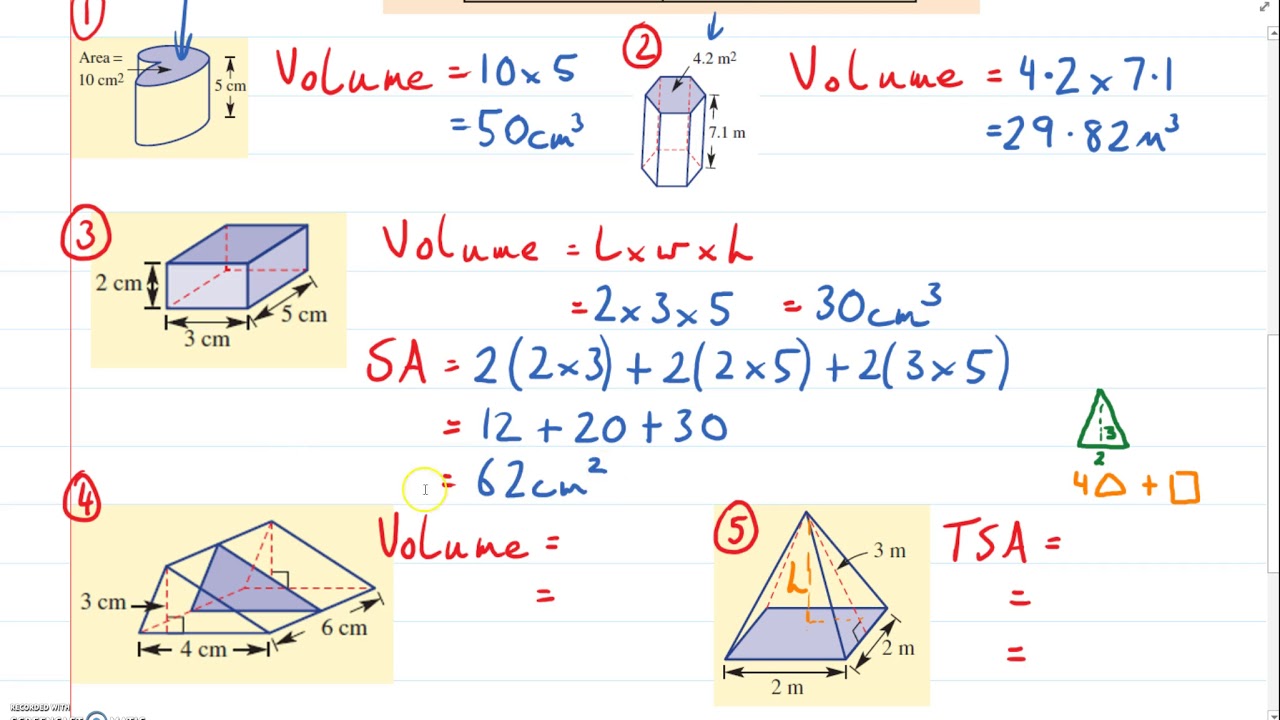 ①
Area =
10 cm²
5 cm
Volume = 10 x 5
= 50cm³
②
4.2 m²
7.1 m
Volume = 4·2 x 7·1
= 29·82m³
③
2 cm
3 cm
5 cm
Volume = L x w x h
= 2 x 3 x 5 = 30cm³
SA = 2(2x3) + 2(2x5) + 2(3x5)
= 12 + 20 + 30
= 62cm²
3
2
4△ + □
④
3 cm
4 cm
6 cm
Volume =
=
⑤
3 m
h
2 m
2 m
TSA =
=
=
RECORDED WITH